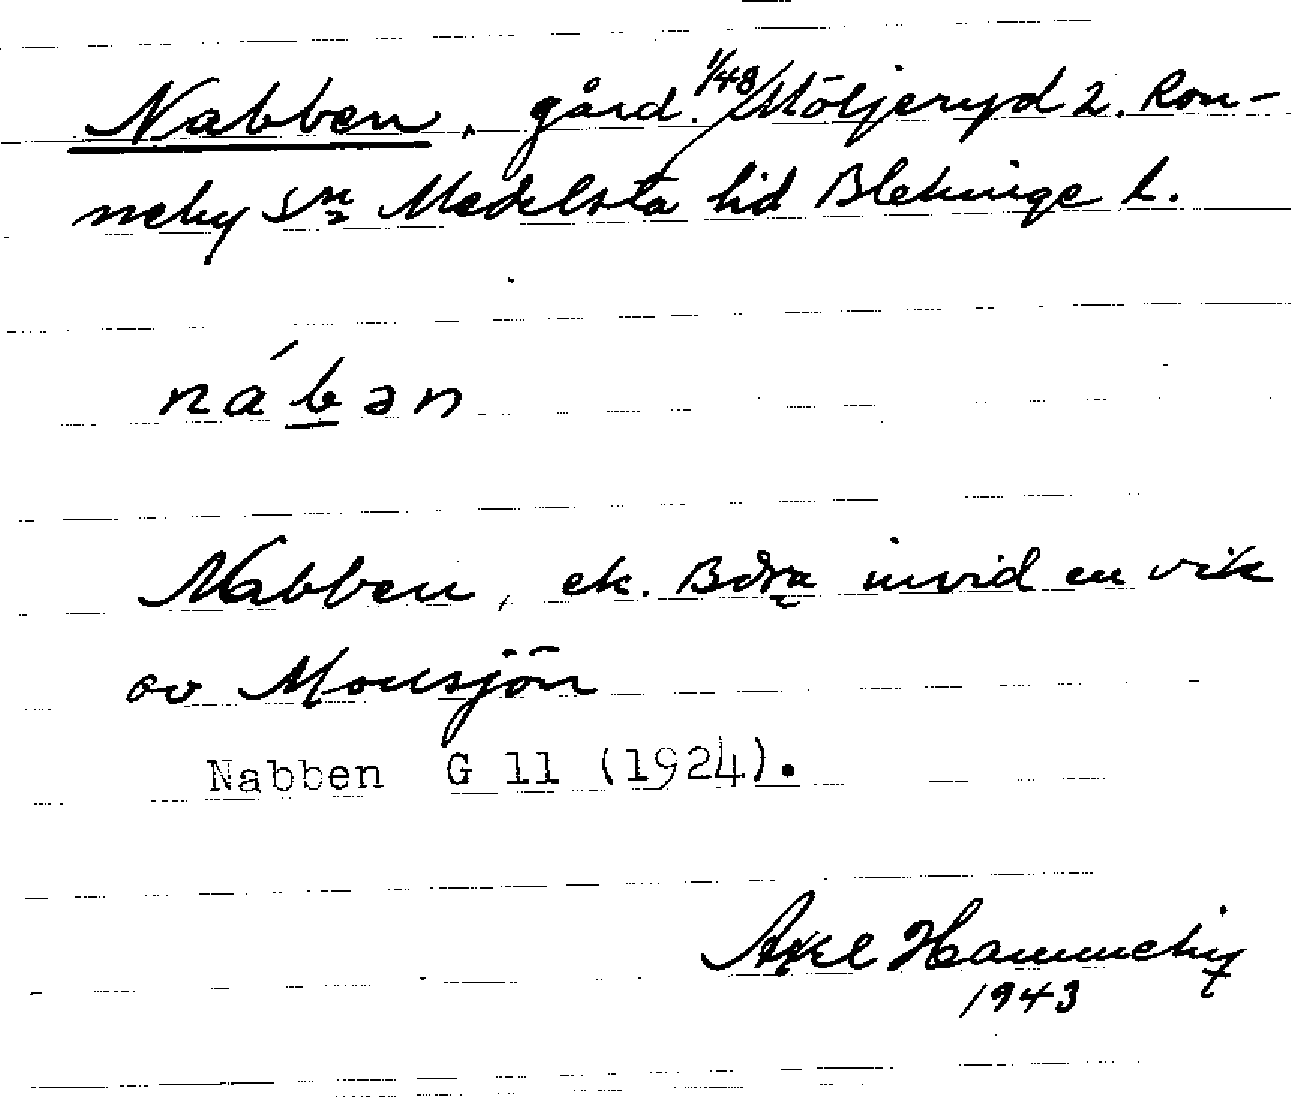 Nabben, gård. 1/48 Möljeryd 2. Ron-
neby sn Medelsta hd Blekinge l.
nábən
Nabben, ek. Böra invid en vik
av Mousjön
Nabben G 11 (1924).
Axel Hammeby
1943